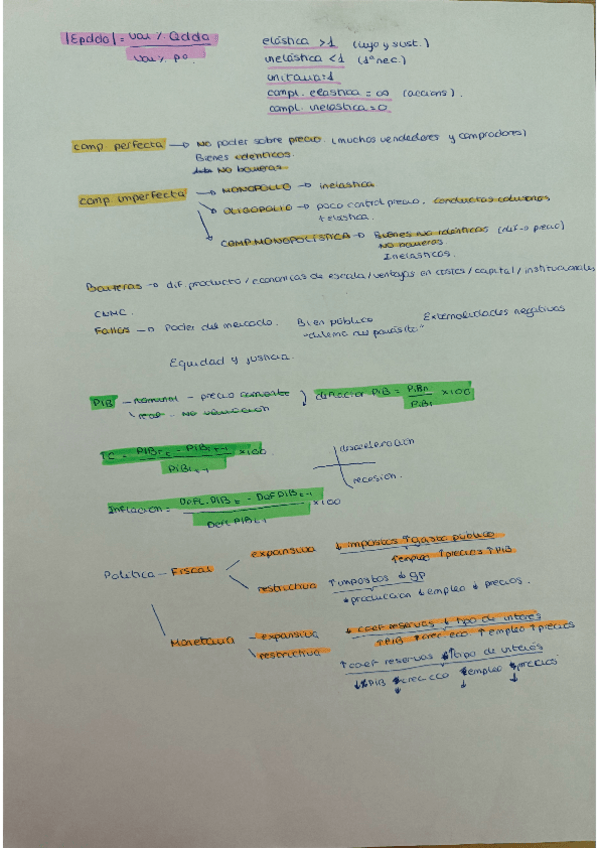 |Epddo| = var % Qdda / var % pº
elástica >1 (lujo y sust.)
inelástica <1 (1º nec.)
unitaria=1
compl. elástica = ∞ (accions).
compl. inelástica=0.
comp. perfecta → NO poder sobre precio. (muchos vendedores y compradores)
Bienes idénticos.
NO barreras
comp imperfecta → MONOPOLIO → inelástica
→ OLIGOPOLIO → poco control precio. conductas colusivas
+ elástica.
→ COMP.MONOPOLÍSTICA → Bienes NO idénticos (dif → precio)
NO barreras
Inelásticos.
Barreras → dif. producto / economías de escala / ventajas en costes / capital / institucionales
CNMC.
Fallos → Poder del mercado. Bien público Externalidades negativas
"dilema del parásito"
Equidad y justicia.
PIB - nominal - precio corriente
real - NO variación
deflactor PIB = PIBn / PIBr x100
TC = PIBr t - PIBr t-1 / PIBr t-1 x100.
desaceleración
recesión.
Inflación = Defl.PIB t - Def PIB t-1 / Defl PIB t-1 x100
Política - Fiscal
expansiva ↓ impostos ↑ gasto público
↑ empleo ↑ precios ↑ PIB
restrictiva ↑ impostos ↓ GP
↓ producción ↓ empleo ↓ precios.
Monetaria - expansiva ↓ coef reservas ↓ tipo de interés
↑ PIB ↑ crec. eco ↑ empleo ↑ precios
restrictiva ↑ coef reservas ↑ tipo de interés
↓ PIB ↓ crec. eco ↓ empleo ↓ precios